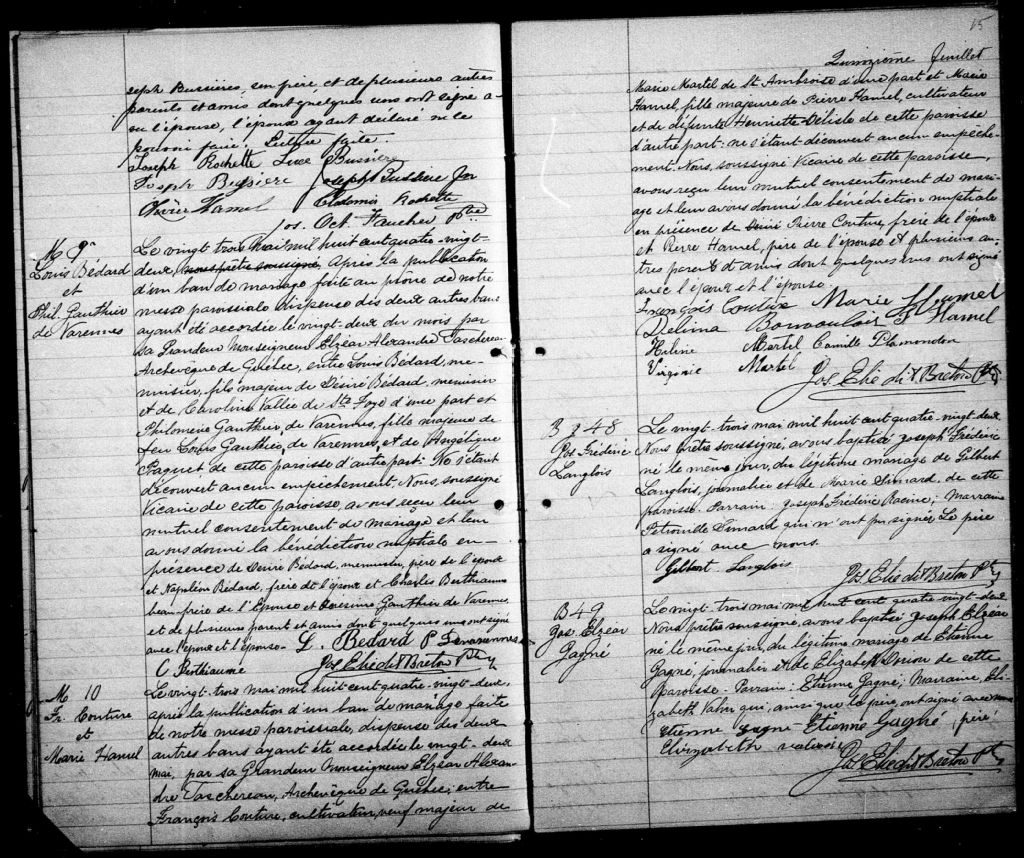 seph Bussières, son père et de plusieurs autres
parents et amis dont quelques uns ont signé a-
vec l'épouse, l'époux ayant déclaré ne le
pouvoir faire. Lecture faite.
Joseph Rochette Luce Bussière
Joseph Bussière Joseph Bussiere Jnr
Olivier Hamel Rochette
Jos. Oct. Faucher Ptre
M 9
Louis Bédard
et
Phil. Gauthier
de Varennes
Le vingt trois mai mil huit cent quatre-vingt-
deux, nous prêtre soussigné, après la publication
d'un ban de mariage faite au prône de notre
messe paroissiale dispense des deux autres bans
ayant été accordée le vingt-deux du mois par
sa Grandeur Monseigneur Elzéar Alexandre Taschereau
Archevêque de Québec, entre Louis Bédard, me-
nuisier, fils majeur de Désiré Bédard, menuisier
et de Caroline Vallée de Ste Foye d'une part et
Philomène Gauthier de Varennes, fille majeure de
feu Louis Gauthier de Varennes, et de Angélique
Paquet de cette paroisse d'autre part. Ne s'étant
découvert aucun empêchement. Nous, soussigné
vicaire de cette paroisse, avons reçu leur
mutuel consentement de mariage et leur
avons donné la bénédiction nuptiale en
présence de Désiré Bédard, menuisier, père de l'époux
et Napoléon Bédard, frère de l'époux et Charles Berthiaume
beau-frère de l'Epouse et Gauthier de Varennes,
et de plusieurs parent et amis dont quelques uns ont signé
avec l'époux et l'épouse. L. Bédard P Devarennes
C Berthiaume Jos Elie dit Breton Ptre
M 10
Fr. Couture
et
Marie Hamel
Le vingt-trois mai mil huit cent quatre-vingt-deux,
après la publication d'un ban de mariage faite
de notre messe paroissiale, dispense des deux
autres bans ayant été accordée le vingt-deux
mai, par sa Grandeur Monseigneur Elzéar Alexan-
dre Taschereau, Archevêque de Québec, entre
François Couture, cultivateur, veuf majeur de
15
Quinzième feuillet
Marie Martel de St. Ambroise d'une part et Marie
Hamel, fille majeure de Pierre Hamel, cultivateur
et de défunte Henriette Delisle de cette paroisse
d'autre part: ne s'étant découvert aucun empêche-
ment. Nous, soussigné Vicaire de cette paroisse,
avons reçu leur mutuel consentement de mari-
age et leur avons donné la bénédiction nuptiale
en présence de Pierre Couture, frère de l'époux
et Pierre Hamel, père de l'épouse et plusieurs au-
tres parents et amis dont quelques uns ont signé
avec l'époux et l'épouse.
François Couture Marie Hamel
Delima P Hamel
Martel Camille Plamondon
Virginie Martel
Jos. Elie dit Breton Ptre
B 48
Jos. Frédéric
Langlois
Le vingt-trois mai mil huit cent quatre-vingt-deux
Nous Prêtre soussigné, avons baptisé Joseph Frédéric
né le même jour, du légitime mariage de Gilbert
Langlois, journalier et de Marie Simard, de cette
paroisse. Parrain: Joseph Frédéric Racine; Marraine
Pétronille Simard qui n'ont pu signer. Le père
a signé avec nous.
Gilbert Langlois
Jos Elie dit Breton Ptre
B 49
Jos. Elzéar
Gagné
Le vingt-trois mai mil huit cent quatre vingt-deux
Nous prêtre soussigné, avons baptisé Joseph Elzéar
né le même jour, du légitime mariage de Etienne
Gagné, journalier et de Elizabeth Drion de cette
paroisse. Parrain: Etienne Gagné; Marraine, Eli-
zabeth qui, ainsi que le père, ont signé avec nous
Etienne Gagné Etienne Gagné père
Jos Elie dit Breton Ptre